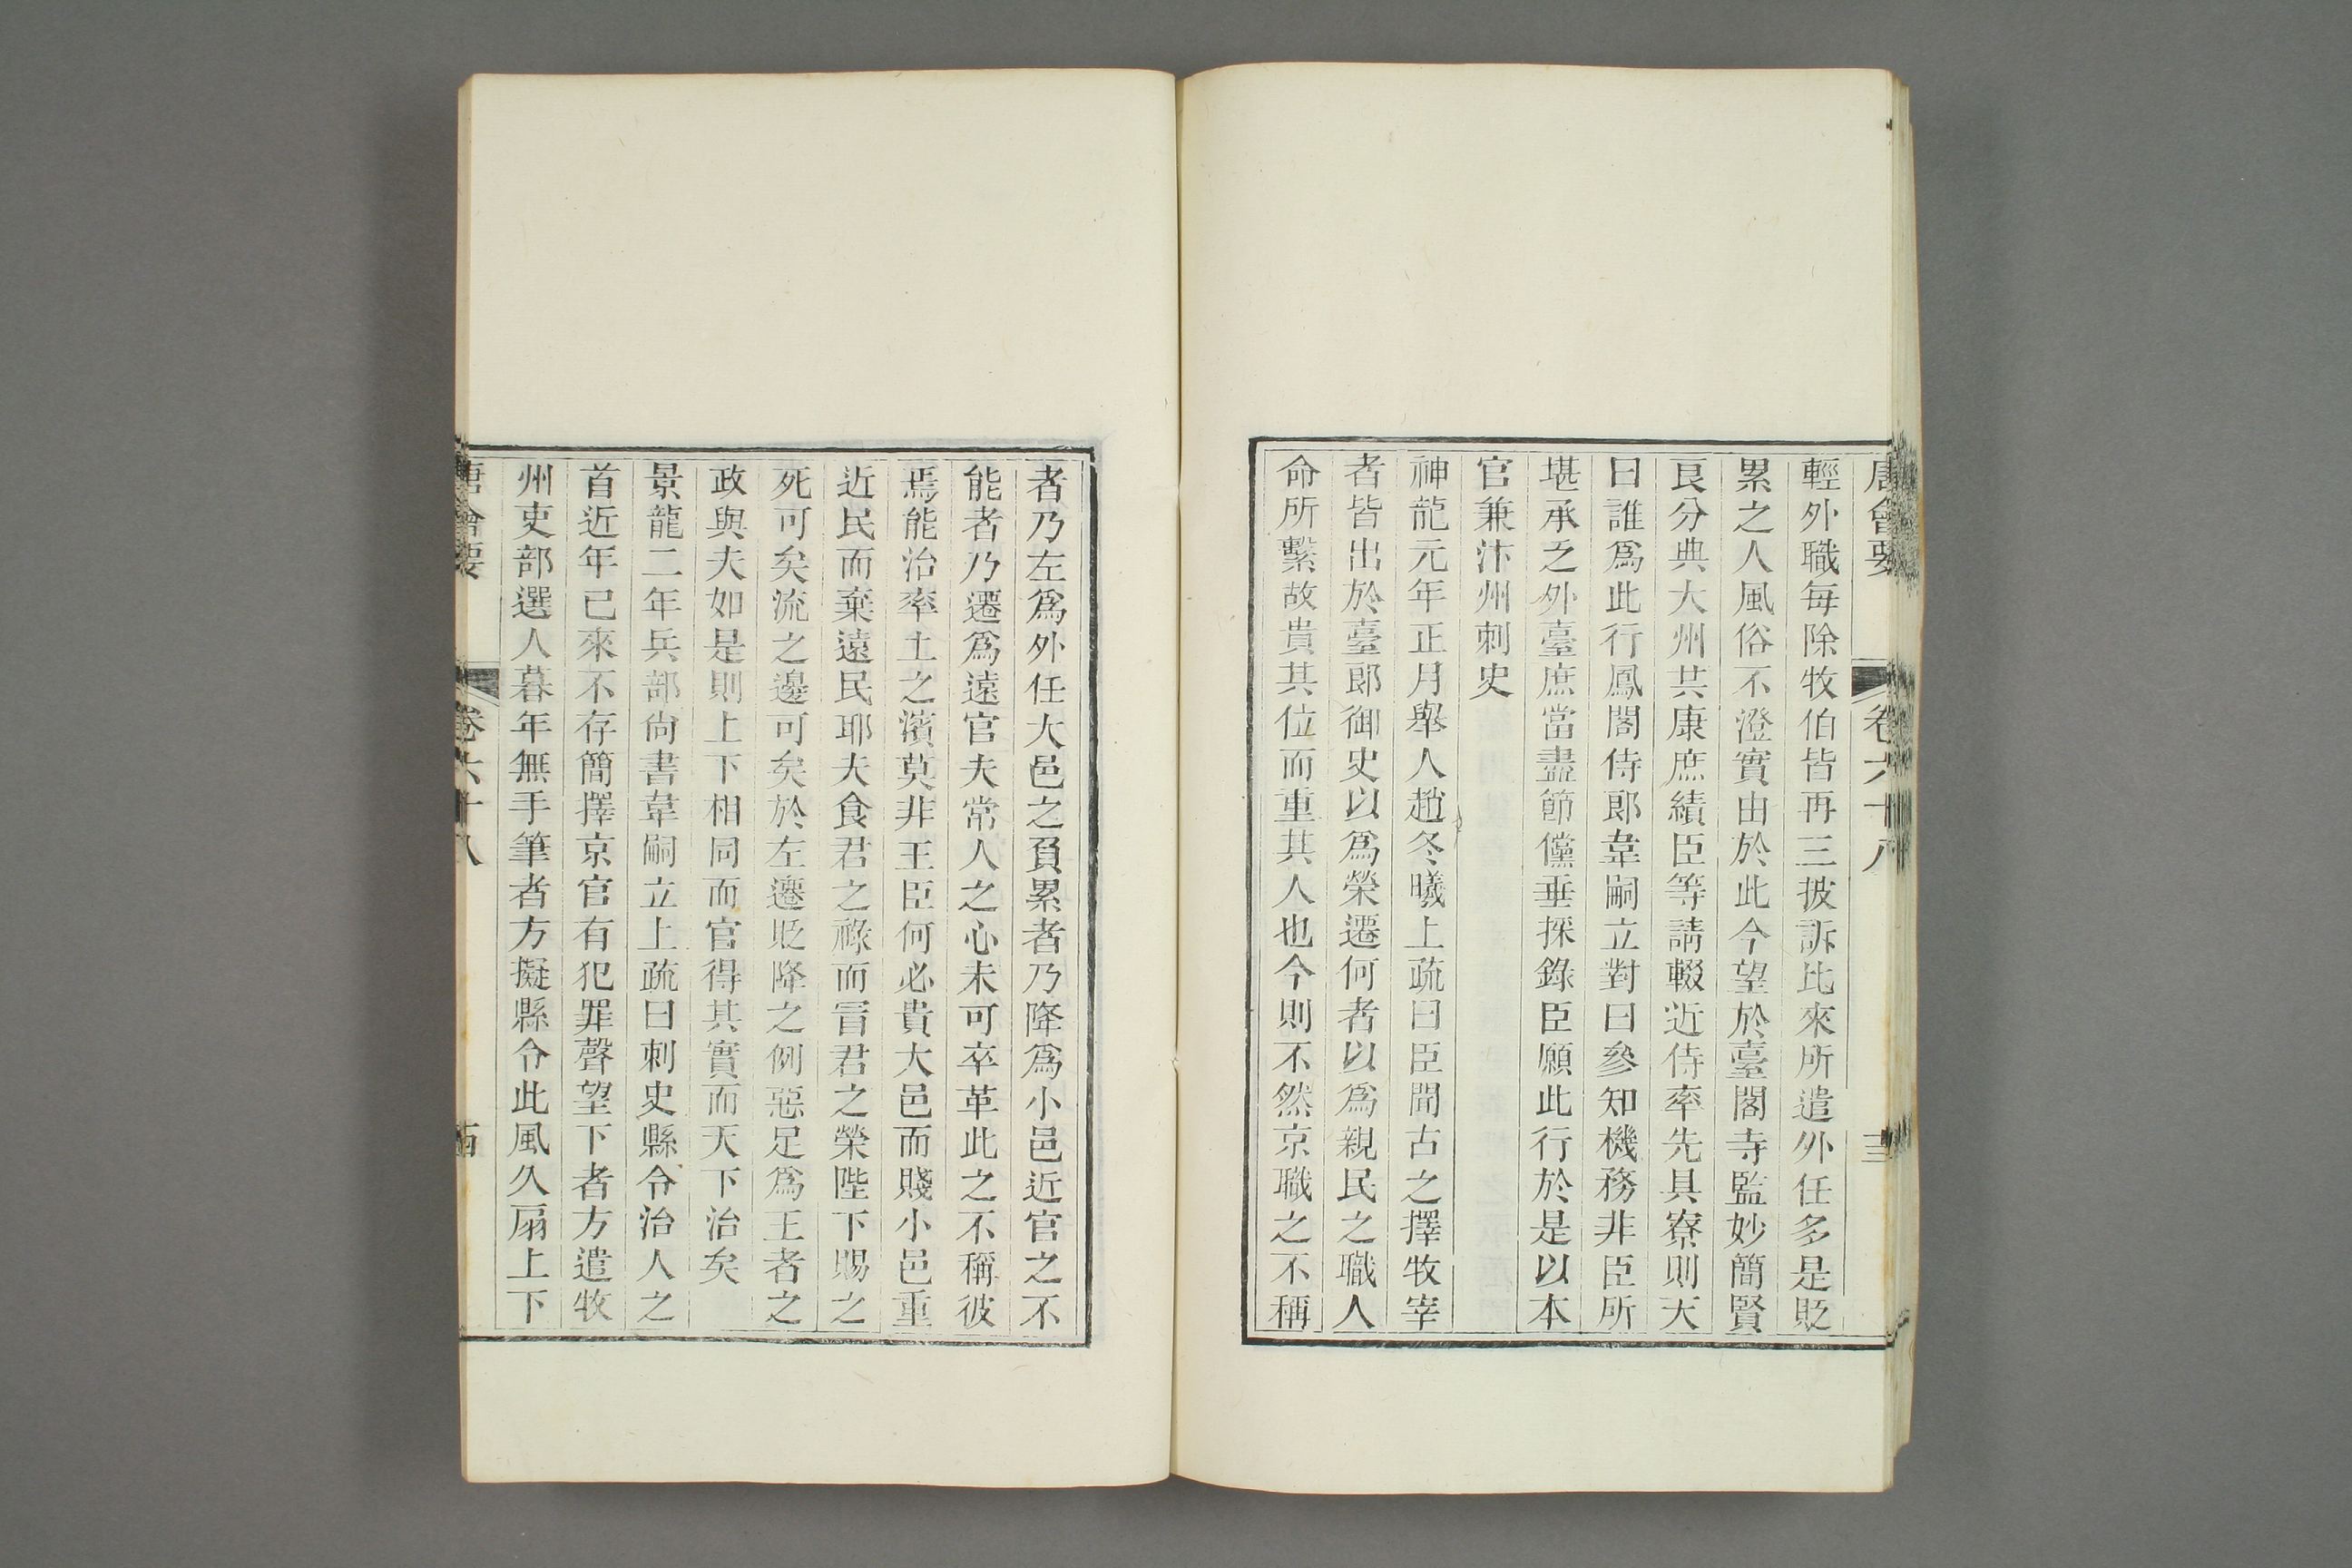 唐會要 卷六十八 三
輕外職每除牧伯皆再三披訴比來所遣外任多是貶
累之人風俗不澄實由於此今望於臺閣寺監妙簡賢
良分典大州共康庶績臣等請輟近侍率先具寮則天
曰誰爲此行鳳閣侍郎韋嗣立對曰參知機務非臣所
堪承乏外臺庶當盡節儻垂採錄臣願此行於是以本
官兼汴州刺史
神龍元年正月舉人趙冬曦上疏曰臣聞古之擇牧宰
者皆出於臺郎御史以爲榮遷何者以爲親民之職人
命所繫故貴其位而重其人也今則不然京職之不稱
者乃左爲外任大邑之負累者乃降爲小邑近官之不
能者乃遷爲遠官夫常人之心未可卒革此之不稱彼
焉能治率土之濱莫非王臣何必貴大邑而賤小邑重
近民而棄遠民耶夫食君之祿而冒君之榮陛下賜之
死可矣流之邊可矣於左遷貶降之例惡足爲王者之
政與夫如是則上下相同而官得其實而天下治矣
景龍二年兵部尙書韋嗣立上疏曰刺史縣令治人之
首近年已來不存簡擇京官有犯罪聲望下者方遣牧
州吏部選人暮年無手筆者方擬縣令此風久扇上下
唐會要 卷六十八